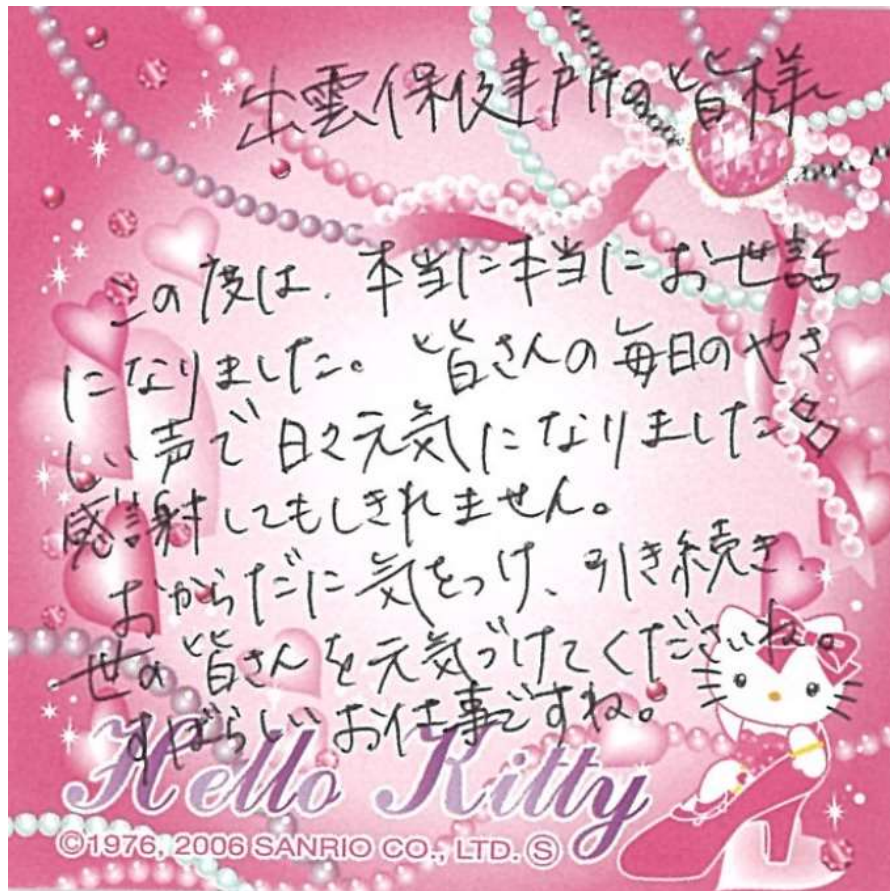 出雲保健所の皆様
この度は、本当に本当にお世話
になりました。皆さんの毎日のやさ
しい声で日々元気になりました
感謝してもしきれません。
おからだに気をつけ、引き続き、
世の皆さんを元気づけてくださいね。
すばらしいお仕事ですね。
Hello Kitty
©1976, 2006 SANRIO CO., LTD. Ⓢ